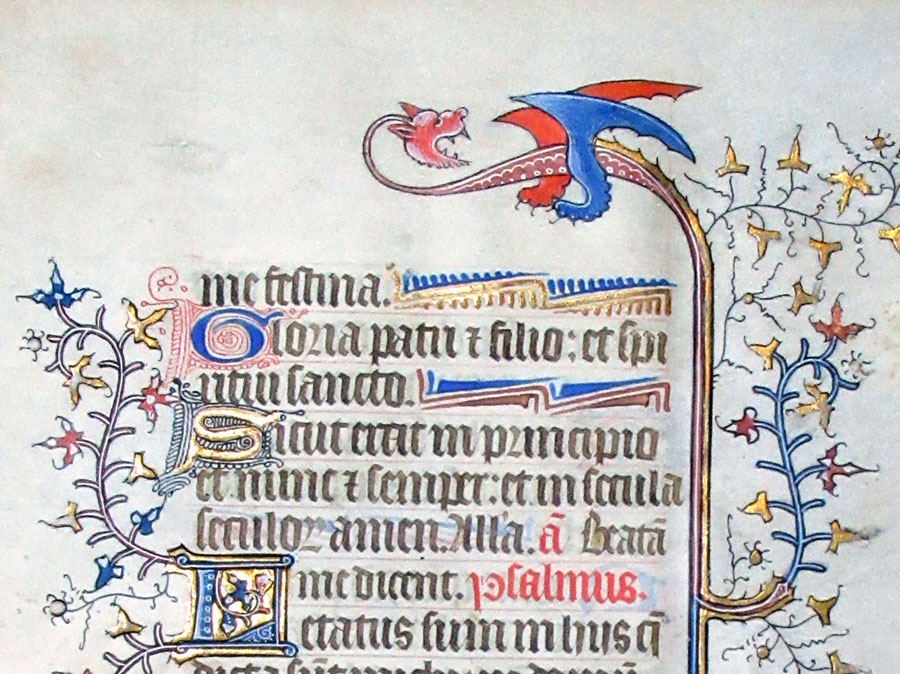 me festina.
Gloria patri ⁊ filio: et spi
ritui sancto.
Sicut erat in principio
et nunc ⁊ semper: et in secula
seculoꝝ amen. All'a. ā Beatā
me dicent. psalmus.
Letatus sum in hiis q̄
dicta sūt michi: in domū